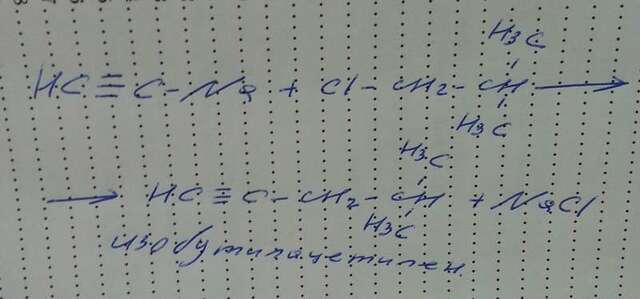 H3C
HC≡C-Na + Cl-CH2-CH →
H3C
H3C
→ HC≡C-CH2-CH + NaCl
H3C
изобутилацетилен